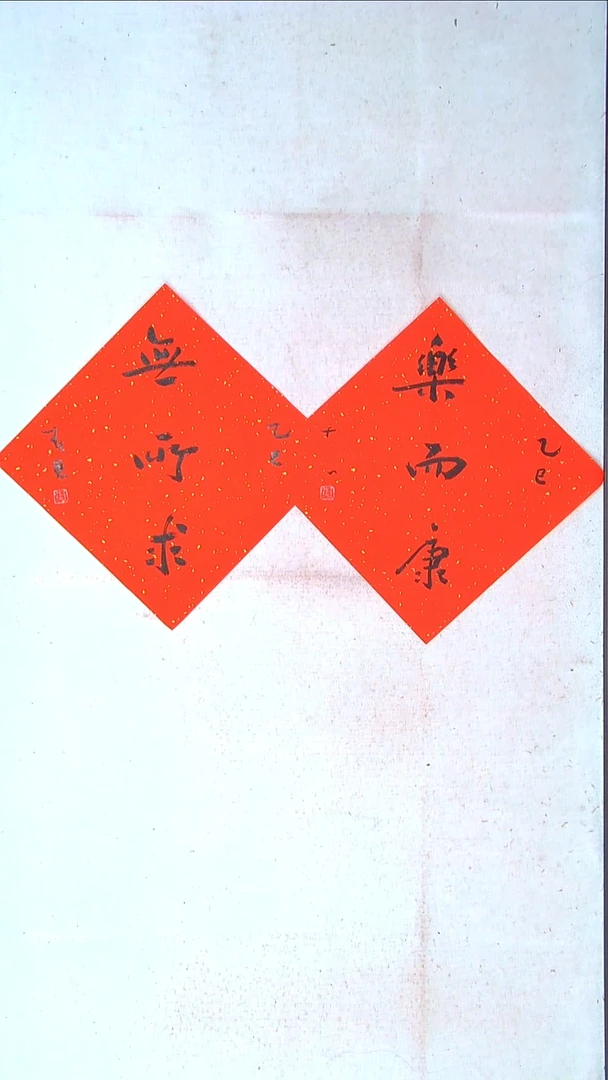 樂而康
乙巳
無所求
乙巳